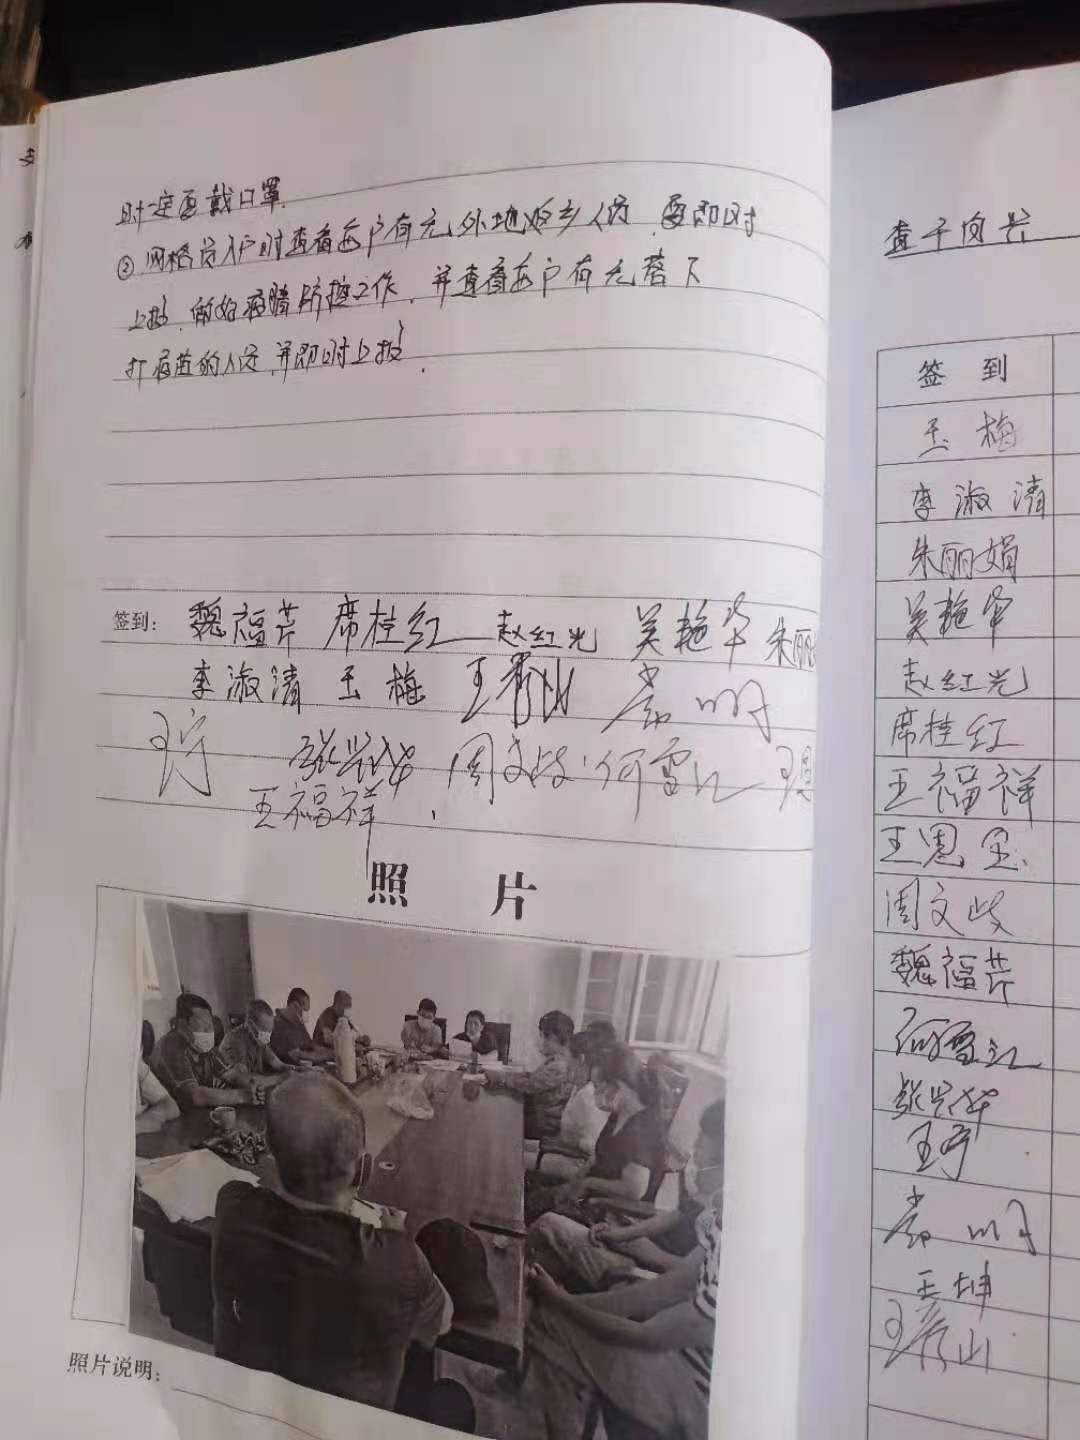 时一定要戴口罩.
②网格员入户时查看每户有无外地返乡人员,要即时
上报,做好疫情防控工作,并查看每户有无落下
打疫苗的人员,并即时上报.
签到: 魏福芹 席桂红 赵红光 吴艳华 朱丽
李淑清 王梅
王宁 张兴华 周文岐 何雪江 王恩
王福祥
照 片
照片说明:
查干向兴
签 到
王梅
李淑清
朱丽娟
吴艳华
赵红光
席桂红
王福祥
王恩
周文岐
魏福芹
何雪江
张兴华
王宁
王坤